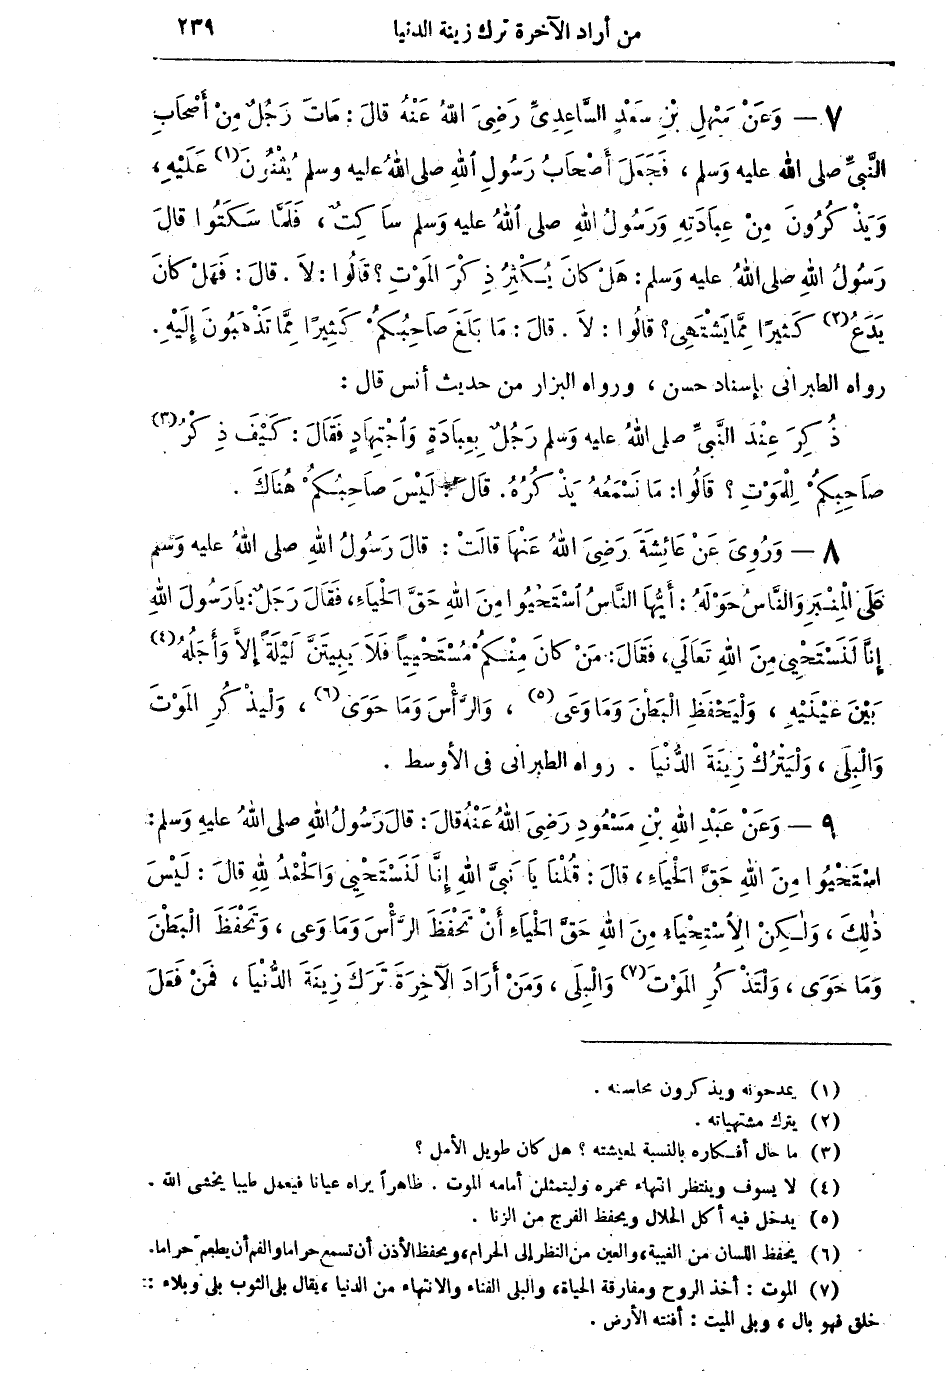 من أراد الآخرة ترك زينة الدنيا ٢٣٩
٧ — وَعَنْ سَهْلِ بْنِ سَعْدٍ السَّاعِدِىِّ رَضِىَ اللهُ عَنْهُ قالَ : مَاتَ رَجُلٌ مِنْ أَصْحَابِ
النَّبِىِّ صلى الله عليه وَسَلم ، فَجَعَلَ أَصْحَابُ رَسُولِ اللهِ صلى اللهُ عليه وسلم يُثْنُونَ (١) عَلَيْهِ ،
وَيَذْكُرُونَ مِنْ عِبَادَتِهِ وَرَسُولُ اللهِ صلى اللهُ عليه وَسَلم سَاكِتٌ ، فَلَمَّا سَكَتُوا قالَ
رَسُولُ اللهِ صلى اللهُ عليه وَسَلم : هَلْ كانَ يُكْثِرُ ذِكْرَ المَوْتِ ؟ قالُوا : لاَ . قالَ : فَهَلْ كانَ
يَدَعُ (٢) كَثِيرًا مِمَّا يَشْتَهِى ؟ قالُوا : لاَ . قالَ : مَا بَلَغَ صَاحِبُكُمْ كَثِيرًا مِمَّا تَذْهَبُونَ إِلَيْهِ .
رواه الطبرانى بإسناد حسن ، ورواه البزار من حديث أنس قال :
ذُكِرَ عِنْدَ النَّبِىِّ صلى اللهُ عليه وَسَلم رَجُلٌ بِعِبَادَةٍ وَاجْتِهَادٍ فَقَالَ : كَيْفَ ذِكْرُ (٣)
صَاحِبِكُمْ لِلْمَوْتِ ؟ قَالُوا : مَا نَسْمَعُهُ يَذْكُرُهُ . قالَ : لَيْسَ صَاحِبُكُمْ هُنَاكَ .
٨ — وَرُوِىَ عَنْ عَائِشَةَ رَضِىَ اللهُ عَنْهَا قالَتْ : قالَ رَسُولُ اللهِ صلى اللهُ عليه وَسَلم
عَلَى الْمِنْبَرِ وَالنَّاسُ حَوْلَهُ : أَيُّهَا النَّاسُ اسْتَحْيُوا مِنَ اللهِ حَقَّ الْحَيَاءِ ، فَقَالَ رَجُلٌ : يَا رَسُولَ اللهِ
إِنَّا لَنَسْتَحْيِى مِنَ اللهِ تَعَالَى ، فَقَالَ : مَنْ كانَ مِنْكُمْ مُسْتَحْيِياً فَلاَ يَبِيتَنَّ لَيْلَةً إِلاَّ وَأَجَلُهُ (٤)
بَيْنَ عَيْنَيْهِ ، وَلْيَحْفَظِ الْبَطْنَ وَمَا وَعَى (٥) ، وَالرَّأْسَ وَمَا حَوَى (٦) ، وَلْيَذْكُرِ المَوْتَ
وَالْبِلَى ، وَلْيَتْرُكْ زِينَةَ الدُّنْيَا . رواه الطبرانى فى الأوسط .
٩ — وَعَنْ عَبْدِ اللهِ بْنِ مَسْعُودٍ رَضِىَ اللهُ عَنْهُ قالَ : قالَ رَسُولُ اللهِ صلى اللهُ عليه وَسَلم :
اسْتَحْيُوا مِنَ اللهِ حَقَّ الْحَيَاءِ ، قالَ : قُلْنَا يَا نَبِىَّ اللهِ إِنَّا لَنَسْتَحْيِى وَالْحَمْدُ لِلهِ قالَ : لَيْسَ
ذٰلِكَ ، وَلٰكِنْ الِاسْتِحْيَاءَ مِنَ اللهِ حَقَّ الْحَيَاءِ أَنْ تَحْفَظَ الرَّأْسَ وَمَا وَعى ، وَتَحْفَظَ الْبَطْنَ
وَمَا حَوَى ، وَلْتَذْكُرِ المَوْتَ (٧) وَالْبِلَى ، وَمَنْ أَرَادَ الآخِرَةَ تَرَكَ زِينَةَ الدُّنْيَا ، فَمَنْ فَعَلَ
(١) يمدحونه ويذكرون محاسنه .
(٢) يترك مشتهياته .
(٣) ما حال أفكاره بالنسبة لمعيشته ؟ هل كان طويل الأمل ؟
(٤) لا يسوف وينتظر انتهاء عمره وليتمثلن أمامه الموت . ظاهراً يراه عيانا فيعمل طيبا يخشى الله .
(٥) يدخل فيه أكل الحلال ويحفظ الفرج من الزنا .
(٦) يحفظ اللسان من الغيبة، والعين من النظر إلى الحرام، ويحفظ الأذن أن تسمع حراما والفم أن يطعم حراما.
(٧) الموت : أخذ الروح ومفارقة الحياة، والبلى الفناء والانتهاء من الدنيا ، يقال بلى الثوب بلى وبلاء :
خلق فهو بال ، وبلى الميت : أفنته الأرض .